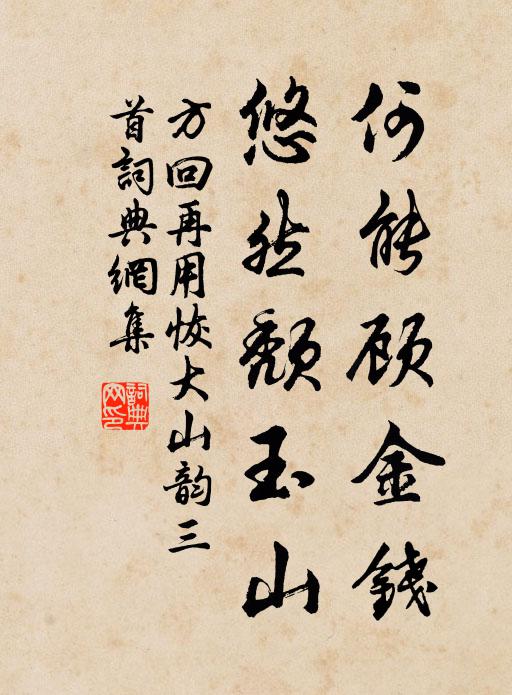 何能顾金錢
悠然颓玉山
方回再用恢大山韵三
首詞典網集
詞典
网印